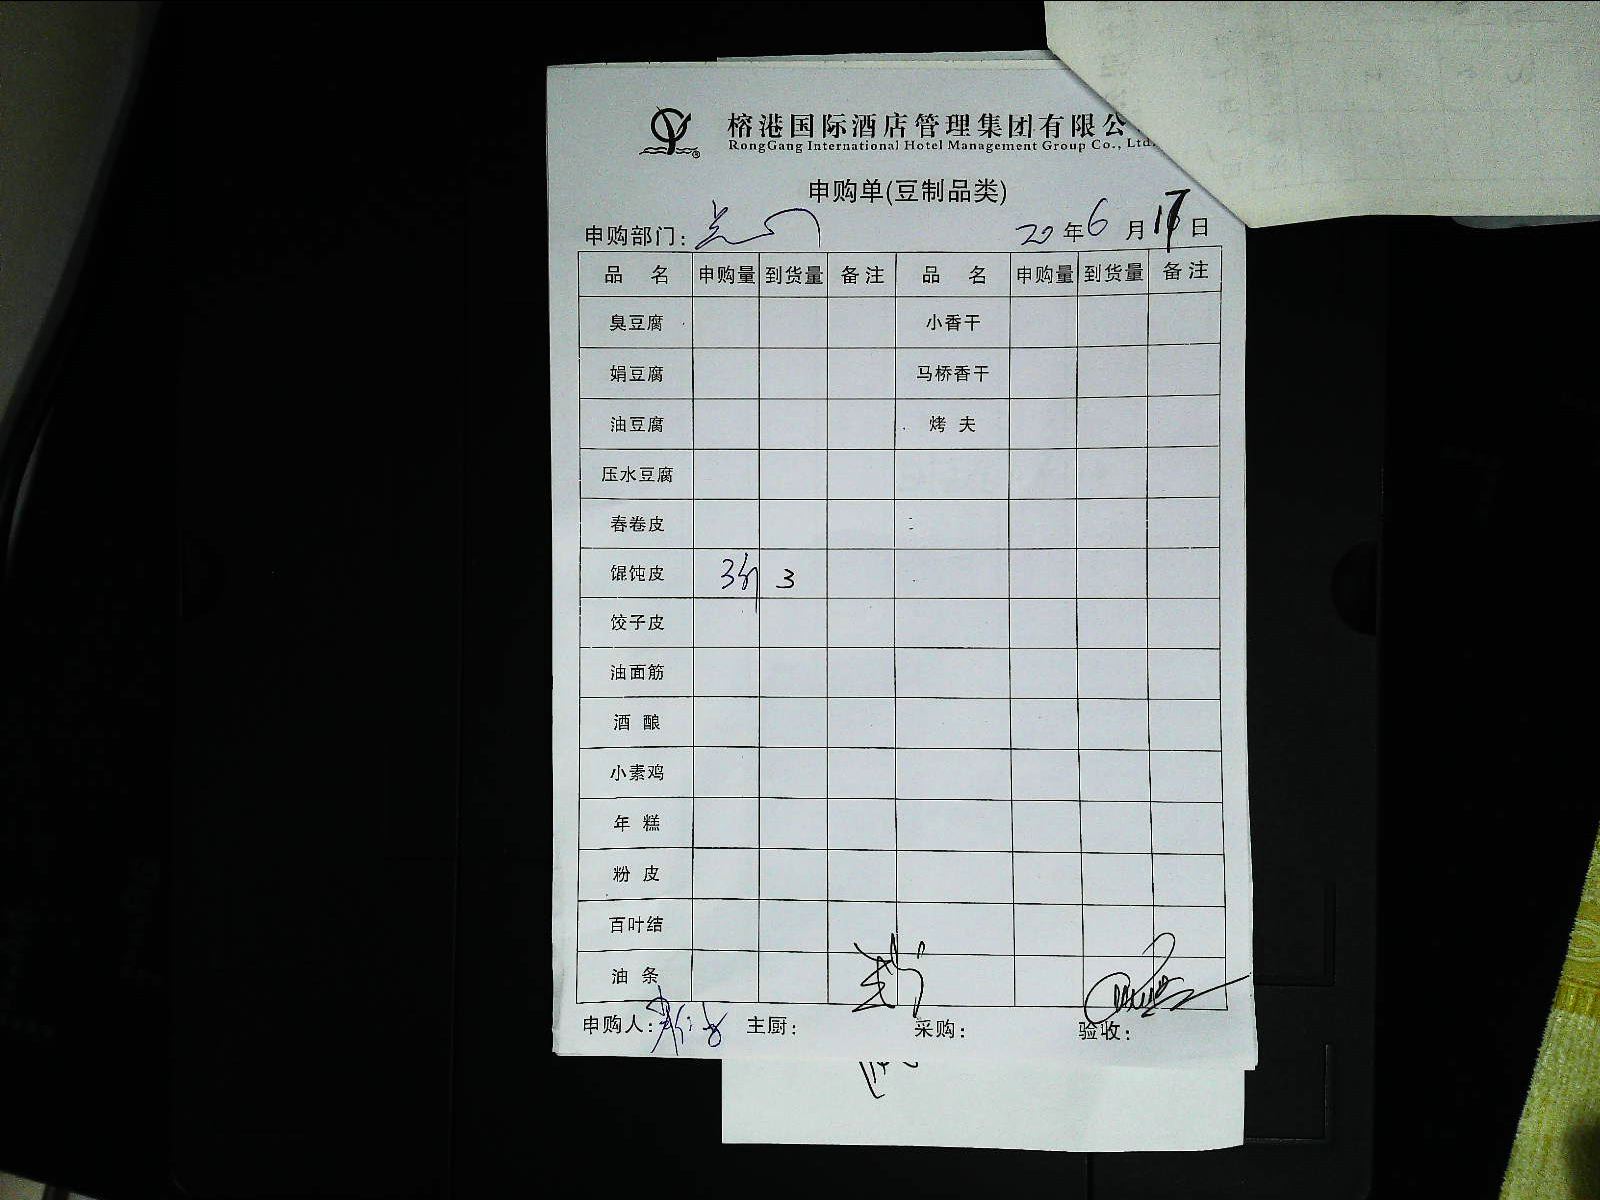 榕港国际酒店管理集团有限公
RongGang International Hotel Management Group Co., Ltd.
申购单(豆制品类)
申购部门: 20年6月17日
品 名 申购量 到货量 备注 品 名 申购量 到货量 备注
臭豆腐 小香干
娟豆腐 马桥香干
油豆腐 烤 夫
压水豆腐
春卷皮
馄饨皮 3斤 3
饺子皮
油面筋
酒 酿
小素鸡
年 糕
粉 皮
百叶结
油 条
申购人: 主厨: 采购: 验收: